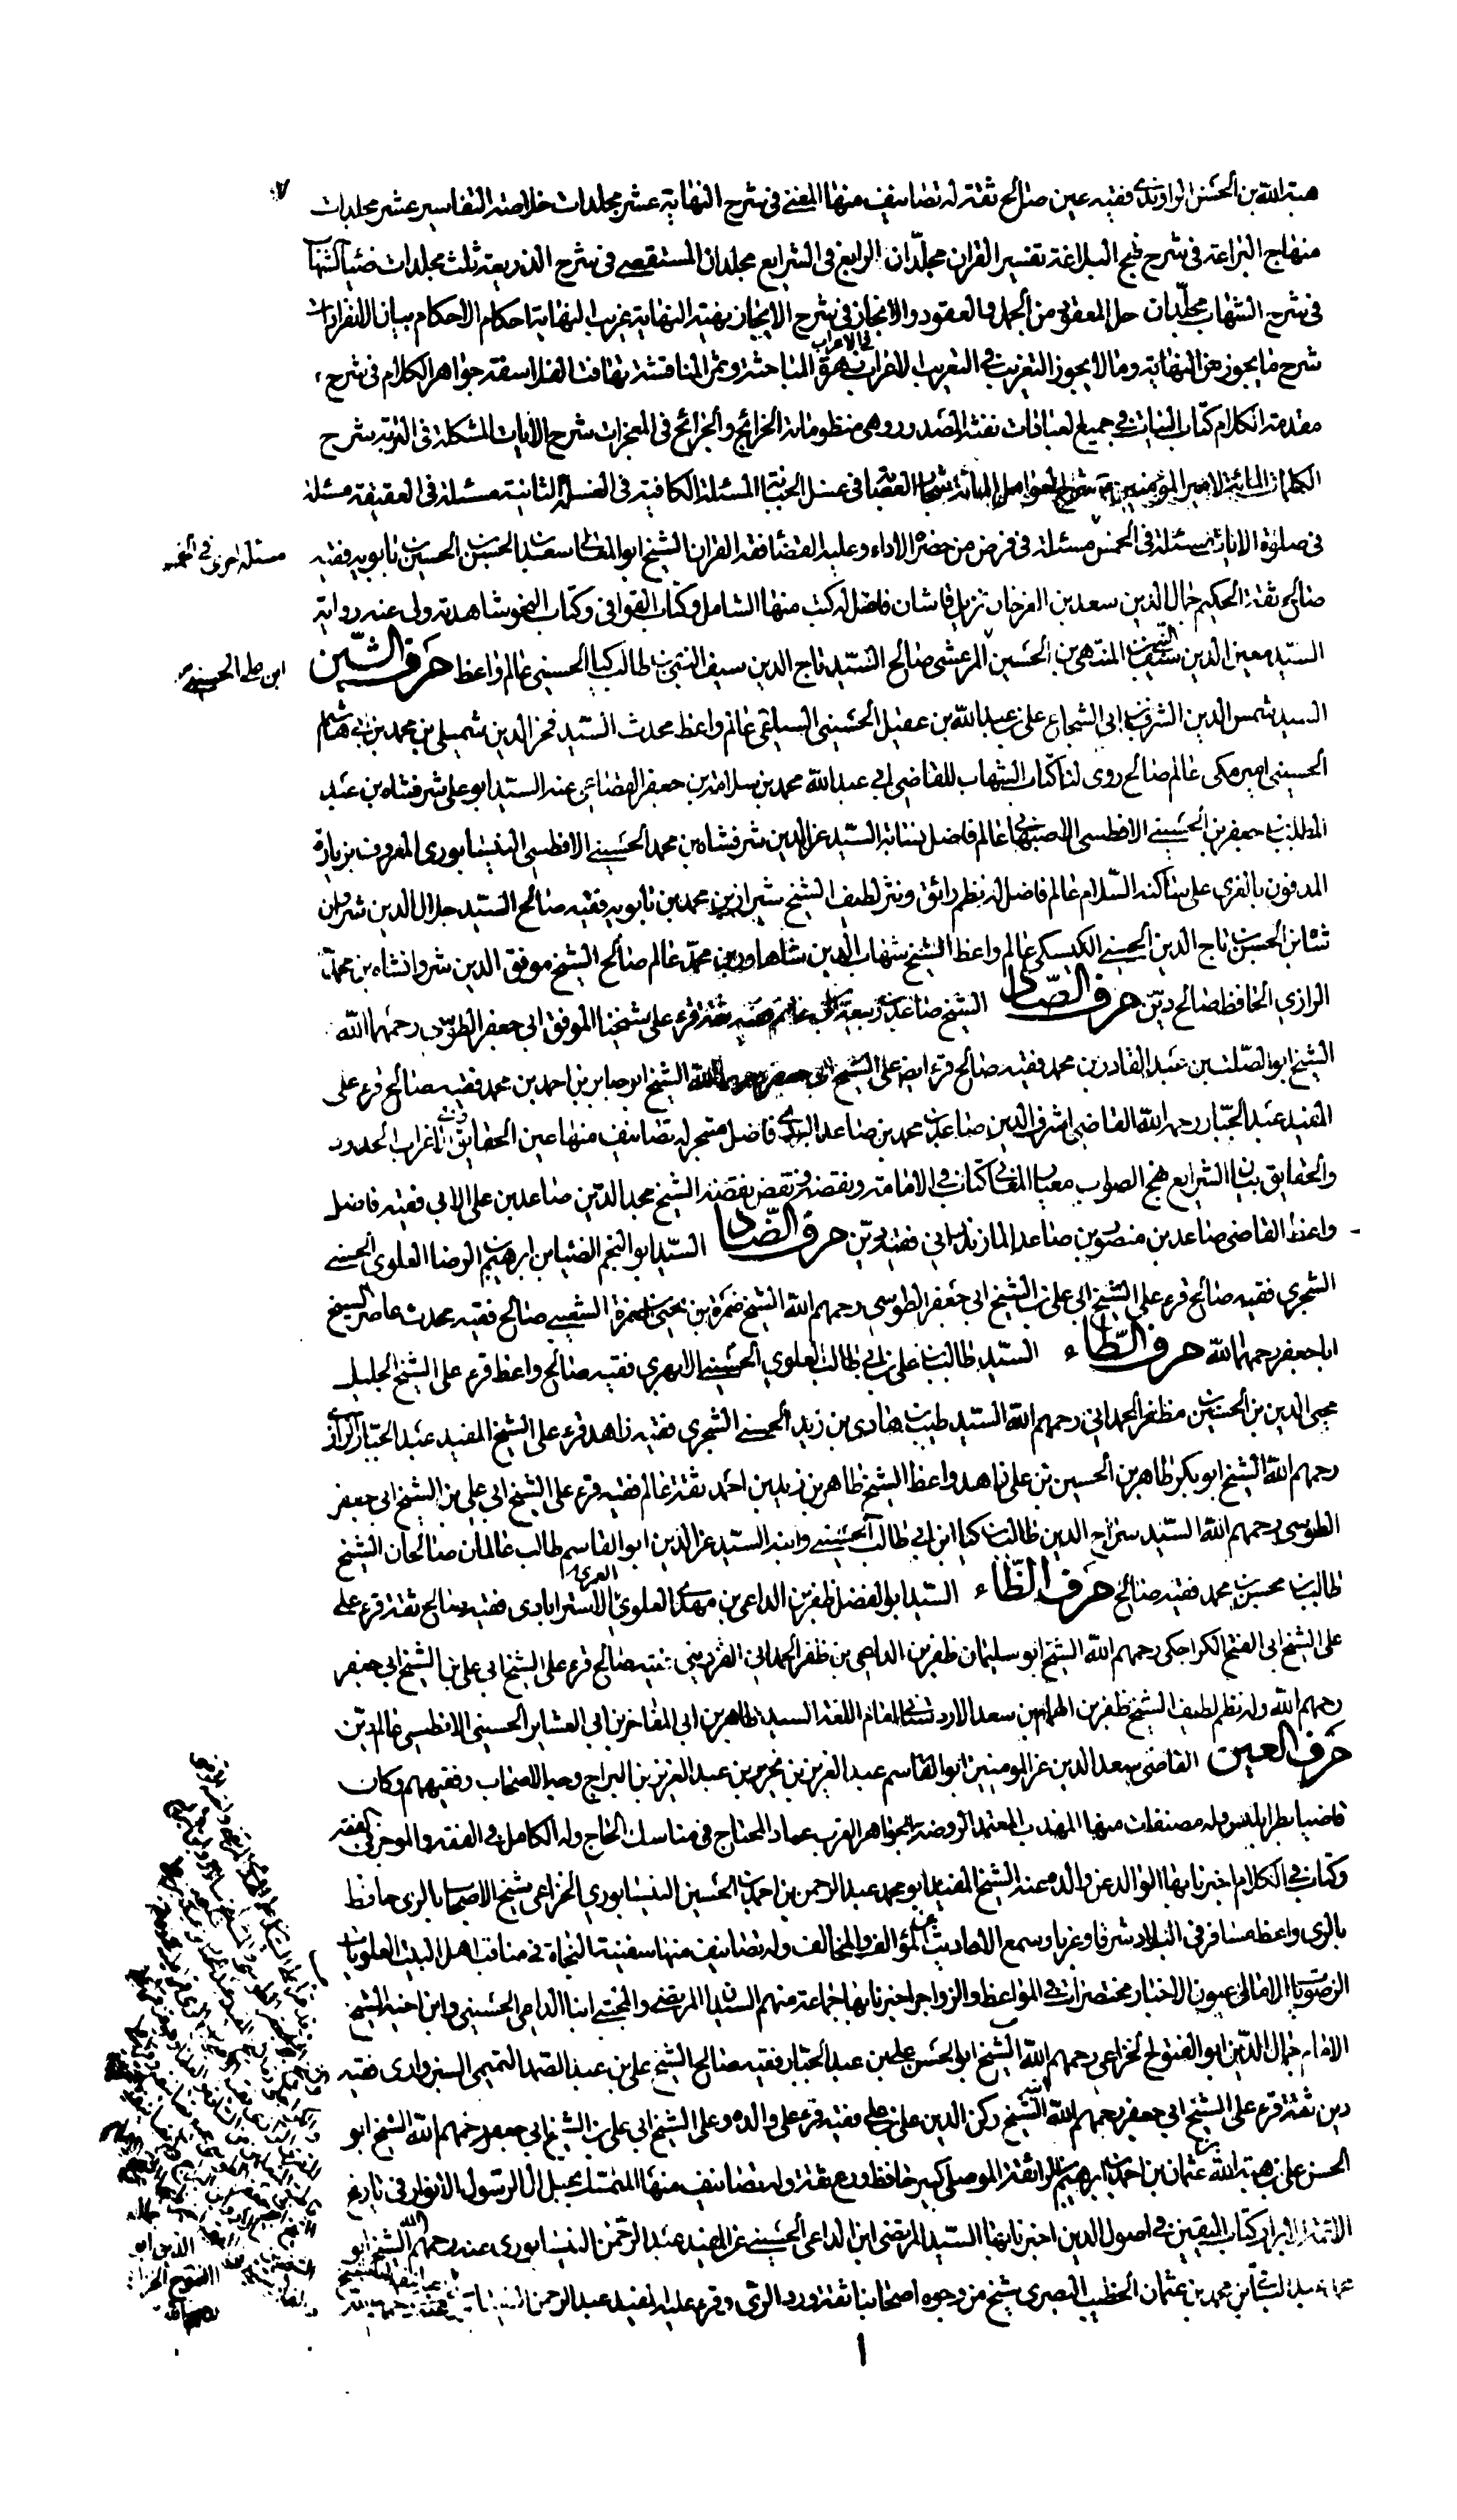 هبة الله بن الحسن الراوندي فقيه عين صالح ثقة له تصانيف منها المغني في شرح النهاية عشر مجلدات خلاصة التفاسير عشر مجلدات
منهاج البراعة في شرح نهج البلاغة تفسير القران مجلدان الرابع في الشرايع مجلدان المستقصي في شرح الذريعة ثلث مجلدات ضياء الشهاب
في شرح الشهاب مجلدات حل المعقود من الجمل والعقود والانجاز في شرح الايجاز نهية النهاية غريب النهاية احكام الاحكام بيان الانفرادات
شرح ما يجوز من النهاية وما لا يجوز التغريب في التعريب الاغراب في الاعراب زهرة المباحثة وثمر المناقشة تهافت الفلاسفة جواهر الكلام في شرح
مقدمة الكلام كتاب النيات في جميع العبادات نفثة المصدور وهي منظوماته الخرائج والجرائح في المعجزات شرح الايات المشكلة في التنزيه شرح
الكلمات المائة لامير المؤمنين شرح العوامل المائة العصابة في غسل الجنابة المسئلة الكافية في الغسل الثانية مسئلة في العقيقة مسئلة
في صلوة الايات مسئلة في الخمس مسئلة في فرض من حضره الاداء وعليه القضا فقه القران الشيخ ابو المعالي سعد بن الحسن بن الحسين بن بابويه فقيه
مسئلة اخرى في الخمس
صالح ثقة الحكيم جمال الدين سعد بن الفرخان نزيل قاشان فاضل له كتب منها الشامل وكتاب القوافي وكتاب النحو شاهدته ولى عنه رواية
السيد معين الدين سيف النبي بن المنتهى بن الحسين المرعشي صالح السيد تاج الدين سيف النبي بن طالب كيا الحسيني عالم واعظ حرف الشين
ابن علي الحسيني
السيد شمس الدين الشرف بن ابي الشجاع علي بن عبد الله بن عقيل الحسيني السيلقي عالم واعظ محدث السيد فخر الدين شميلي بن محمد بن ابي هاشم
الحسيني امير مكى عالم صالح روى لنا كتاب الشهاب للقاضي ابي عبد الله محمد بن سلامة بن جعفر القضاعي عنه السيد ابو علي شرفشاه بن عبد
المطلب بن جعفر بن الحسيني الافطسي الاصبهاني عالم فاضل نسابة السيد عز الدين شرفشاه بن محمد الحسيني الافطسي النيسابوري المعروف بزيارة
المدفون بالغري على ساكنه السلام عالم فاضل له نظم رائق ونثر لطيف الشيخ شيرازين محمد بن بابويه فقيه صالح السيد جلال الدين شروان
شاه بن الحسن بن تاج الدين الحسيني الكيسكي عالم واعظ الشيخ شهاب الدين شاهاور بن محمد عالم صالح الشيخ موفق الدين شروانشاه بن محمد
الرازي الحافظ صالح دين حرف الصاد الشيخ صاعد بن ربيعة بن غانم فقيه ثقة قرء على شيخنا الموفق ابي جعفر الطوسي رحمهما الله
الشيخ ابو الصلت بن عبد القادر بن محمد فقيه صالح قرء ايضا على الشيخ ابي جعفر رحمهما الله الشيخ ابو صابر بن احمد بن محمد فقيه صالح قرء على
المفيد عبد الجبار رحمه الله القاضي اشرف الدين صاعد بن محمد بن صاعد البريدي فاضل متبحر له تصانيف منها عين الحقايق الاغراب الحدود
والحقايق بيان الشرايع نهج الصواب معيار المعاني كتاب في الامامة ونقضه ونقض نقضه الشيخ مجد الدين صاعد بن علي الابي فقيه فاضل
واعظ القاضي صاعد بن منصور بن صاعد المازندراني فقيه دين حرف الضاد السيد ابو النجم الضياء بن ابرهيم بن الرضا العلوي الحسني
الشجري فقيه صالح قرء على الشيخ ابي علي بن الشيخ ابي جعفر الطوسي رحمهم الله الشيخ ضمرة بن يحيى بن ضمرة الشعبي صالح فقيه محدث عاصر الشيخ
ابا جعفر رحمهما الله حرف الطاء السيد طالب بن علي بن ابي طالب العلوي الحسيني الابهري فقيه صالح واعظ قرء على الشيخ الجليل
محيى الدين بن الحسين بن مظفر الحمداني رحمهم الله السيد طيب بن هادي بن زيد الحسني الشجري فقيه زاهد قرء على الشيخ المفيد عبد الجبار الرازي
رحمهم الله الشيخ ابو بكر طاهر بن الحسين بن علي زاهد واعظ الشيخ طاهر بن زيد بن احمد ثقة عالم فقيه قرء على الشيخ ابي علي بن الشيخ ابي جعفر
الطوسي رحمهم الله السيد سراج الدين طالب كيا ابن ابي طالب الحسيني وابنه السيد عز الدين ابو القاسم طالب عالمان صالحان الشيخ
طالب بن محسن بن محمد فقيه صالح حرف الظاء السيد ابو الفضل ظفر بن الداعي بن مهدي العلوي العمري الاسترابادي فقيه صالح ثقة قرء على
على الشيخ ابي الفتح الكراجكي رحمهم الله الشيخ ابو سليمان ظفر بن الداعي بن ظفر الحمداني القزويني فقيه صالح قرء على الشيخ ابي علي بن الشيخ ابي جعفر
رحمهم الله وله نظم لطيف الشيخ ظفر بن الهمام بن سعد الاردستاني امام اللغة السيد ظاهر بن ابي المفاخر بن ابي العشاير الحسيني الافطسي عالم دين
حرف العين القاضي سعد الدين عز المومنين ابو القاسم عبد العزيز بن نحرير بن عبد العزيز بن البراج وجه الاصحاب وفقيههم وكان
قاضيا بطرابلس وله مصنفات منها المهذب المعتمد الروضة الجواهر المقرب عماد المحتاج في مناسك الحاج وله الكامل في الفقه والموجز في الفقه
وكتاب في الكلام اخبرنا بها الوالد عن والده عنه الشيخ المفيد ابو محمد عبد الرحمن بن احمد بن الحسين النيسابوري الخزاعي شيخ الاصحاب بالري حافظ
بالري واعظ مسافر في البلاد شرقا وغربا وسمع الاحاديث عن المؤالف والمخالف وله تصانيف منها سفينة النجاة في مناقب اهل البيت العلويات
الرضويات الامالي عيون الاخبار مختصرات في المواعظ والزواجر اخبرنا بها جماعة منهم السيدان المرتضى والمجتبى ابنا الداعي الحسيني وابن اخيه الشيخ
الامام جمال الدين ابو الفتوح الخزاعي رحمهم الله الشيخ ابو الحسن علي بن عبد الجبار فقيه صالح الشيخ علي بن عبد الصمد التميمي السبزواري فقيه
دين ثقة قرء على الشيخ ابي جعفر رحمهم الله الشيخ ركن الدين علي بن علي فقيه قرء على والده وعلى الشيخ ابي علي بن الشيخ ابي جعفر رحمهم الله الشيخ ابو
الحسن علي بن هبة الله بن عثمان بن احمد بن ابرهيم بن الرائقة الموصلي كبير حافظ ورع ثقة وله تصانيف منها المتمسك بحبل ال الرسول الانوار في تاريخ
الائمة الابرار كتاب اليقين في اصول الدين اخبرنا بها السيد المرتضى ابن الداعي الحسيني عن المفيد عبد الرحمن النيسابوري عنه رحمهم الله الشيخ ابو
بن محمد بن عثمان الخطيب البصري شيخ من وجوه اصحابنا ثقة ورد الري وقرء عليه المفيد عبد الرحمن
١